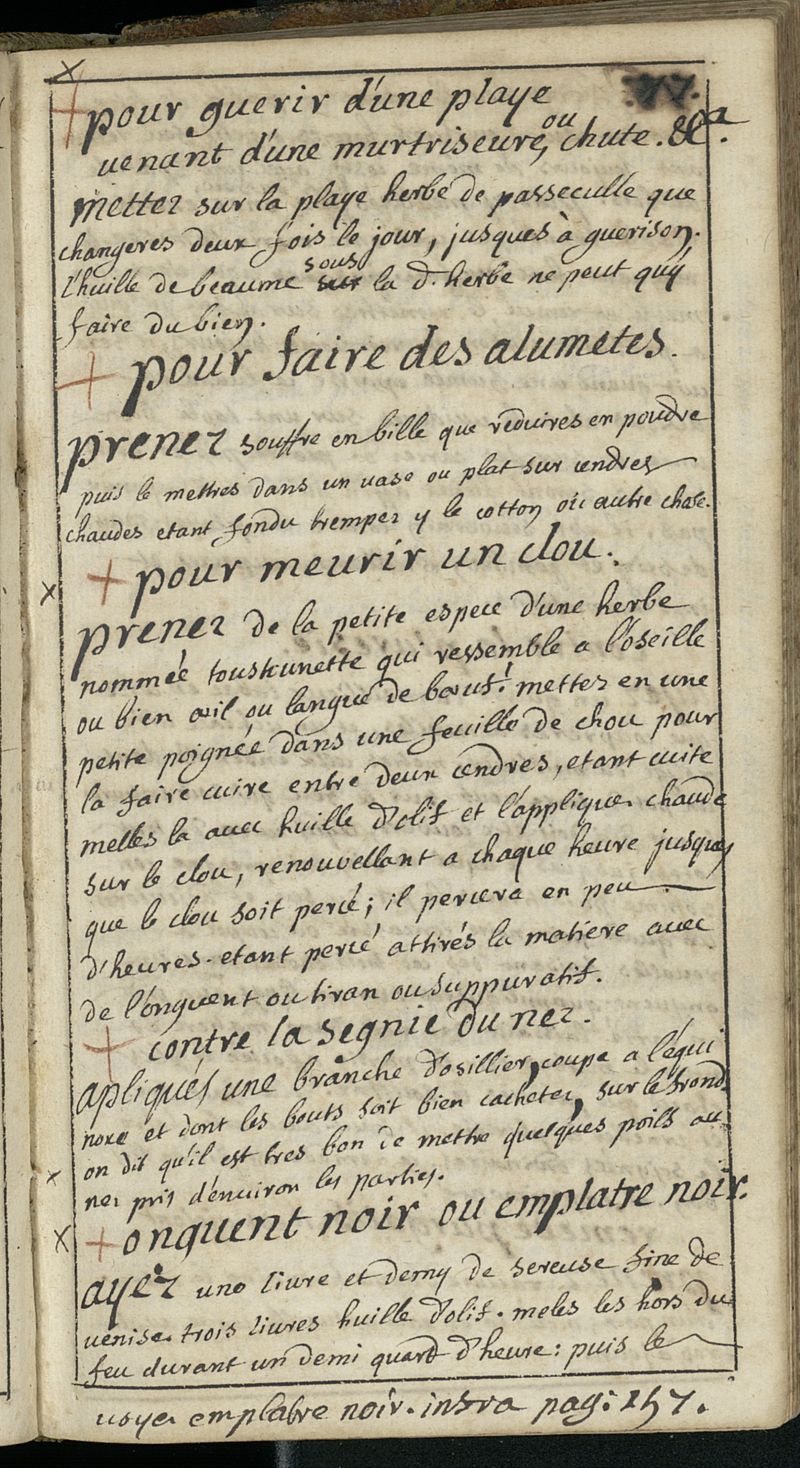 77.
pour guerir d'une playe
venant d'une murtriseure, ou chute. &c.a
Mettez sur la playe herbe de passeculle que
changeres deux fois le jour, jusques à guerison.
l'huille de beaume sous sur la d. herbe ne peut quy
faire du bien.
pour faire des alumetes.
prenez souffre en bille que reduires en poudre
puis le mettres dans un vase ou plat sur cendres
chaudes etant fondu trempez y le cotton ou autre chose.
pour meurir un clou.
prenez de la petite espece d'une herbe
nommée touskunette qui ressemble a l'oseille
ou bien œil ou langue de bœuf: mettez en une
petite poignée dans une feuille de chou pour
la faire cuire entre deux cendres, etant cuite
mellés la avec huille d'olif et l'appliquez chaude
sur le clou, renouvellant a chaque heure jusques
que le clou soit percé; il percera en peu
d'heures. etant percé attirés la matiere avec
de l'onguent ou tiran ou suppuratif.
contre la segnie du nez.
apliqués une branche d'osillier, coupe a l'équi
noxe et dont les bouts soit bien cachetez, sur le frond
on dit qu'il est tres bon de mettre quelques poils au
nez pris d'environ les parties.
onquent noir ou emplatre noir.
ayez une livre et demy de sereuse fine de
venise. trois livres huille d'olif. meles les hors du
feu durant un demi quard d'heure: puis le
voyez emplatre noir. infra pag: 157.